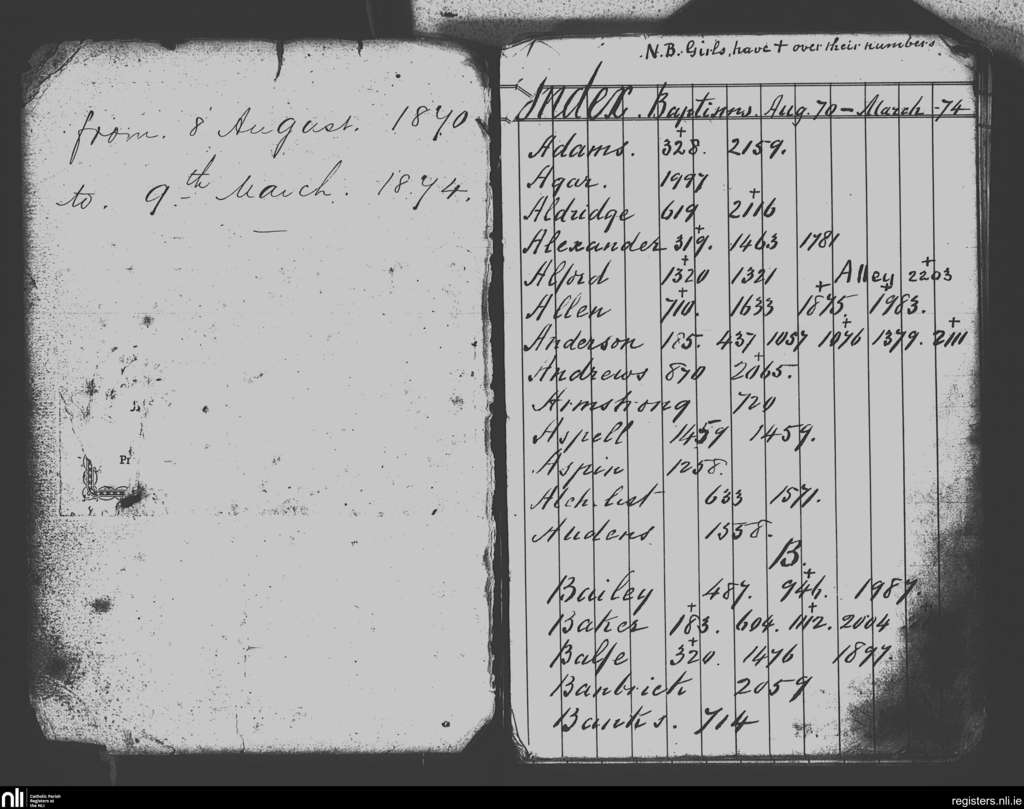 from. 8 August. 1870
to. 9th March. 1874.
Pr
N.B. Girls, have + over their numbers.
Index. Baptisms. Aug. 70 – March - 74
Adams. +328. 2159.
Agar. 1997
Aldridge 619 +2116
Alexander +319. 1463 1781
Alford +1320 1321 Alley +2203
Allen +710. 1633 +1875. +1983.
Anderson 185. 437 1057 +1076 1379. +2111
Andrews 870 +2065.
Armstrong 720
Aspell 1459 1459.
Aspin 1258.
633 1571.
Audens 1558.
B.
Bailey 487. +946. 1987.
Baker +183. 604. +1112. 2004
Balfe +320. 1476 1897.
Banbrick 2059
Banks. 714
nli
Catholic Parish
Registers at
the NLI
registers.nli.ie